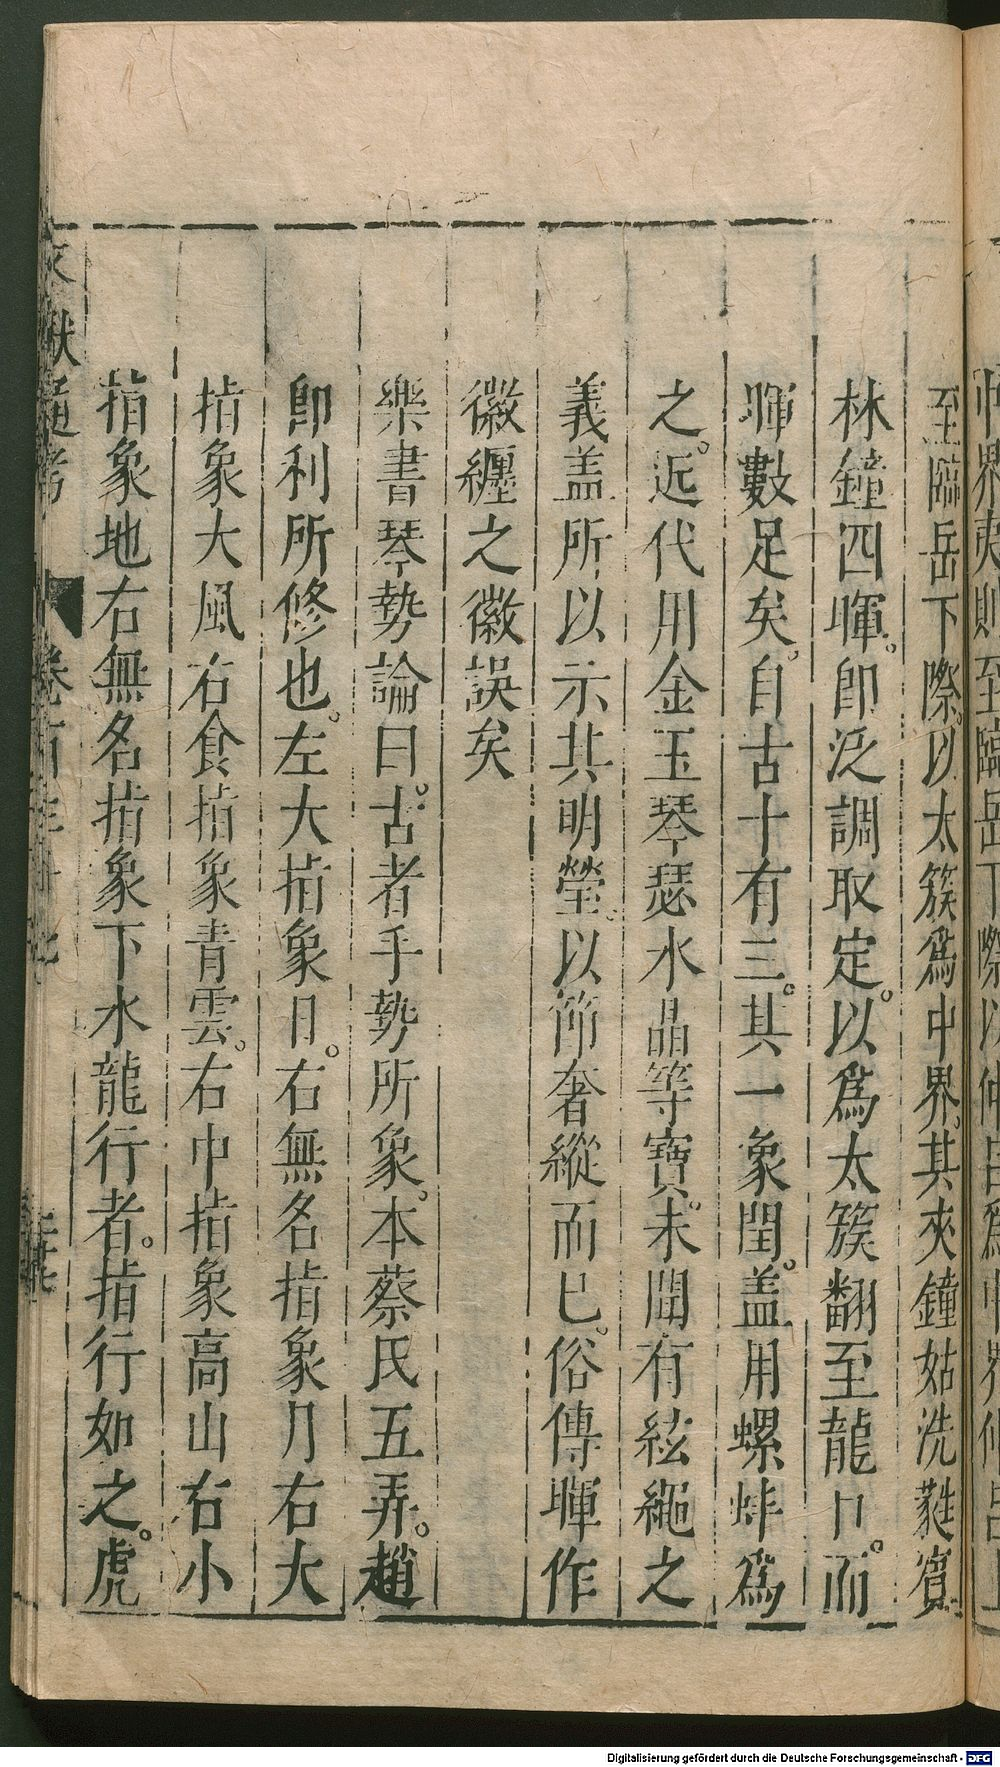 至臨岳下際。以太簇爲中界。其夾鐘姑洗蕤賓
林鐘四暉。卽泛調取定。以爲太簇翻至龍口。而
暉數足矣。自古十有三。其一象閏。盖用螺蚌爲
之。近代用金玉琴瑟水晶等寶。未聞有絃繩之
義盖所以示其明瑩。以節奢縱而已。俗傳暉作
徽纏之徽誤矣
樂書琴勢論曰。古者手勢所象。本蔡氏五弄。趙
卽利所修也。左大指象日。右無名指象月右大
指象大風右食指象青雲。右中指象高山右小
指象地右無名指象下水龍行者。指行如之。虎
文獻通考 卷百三十七
Digitalisierung gefördert durch die Deutsche Forschungsgemeinschaft - DFG